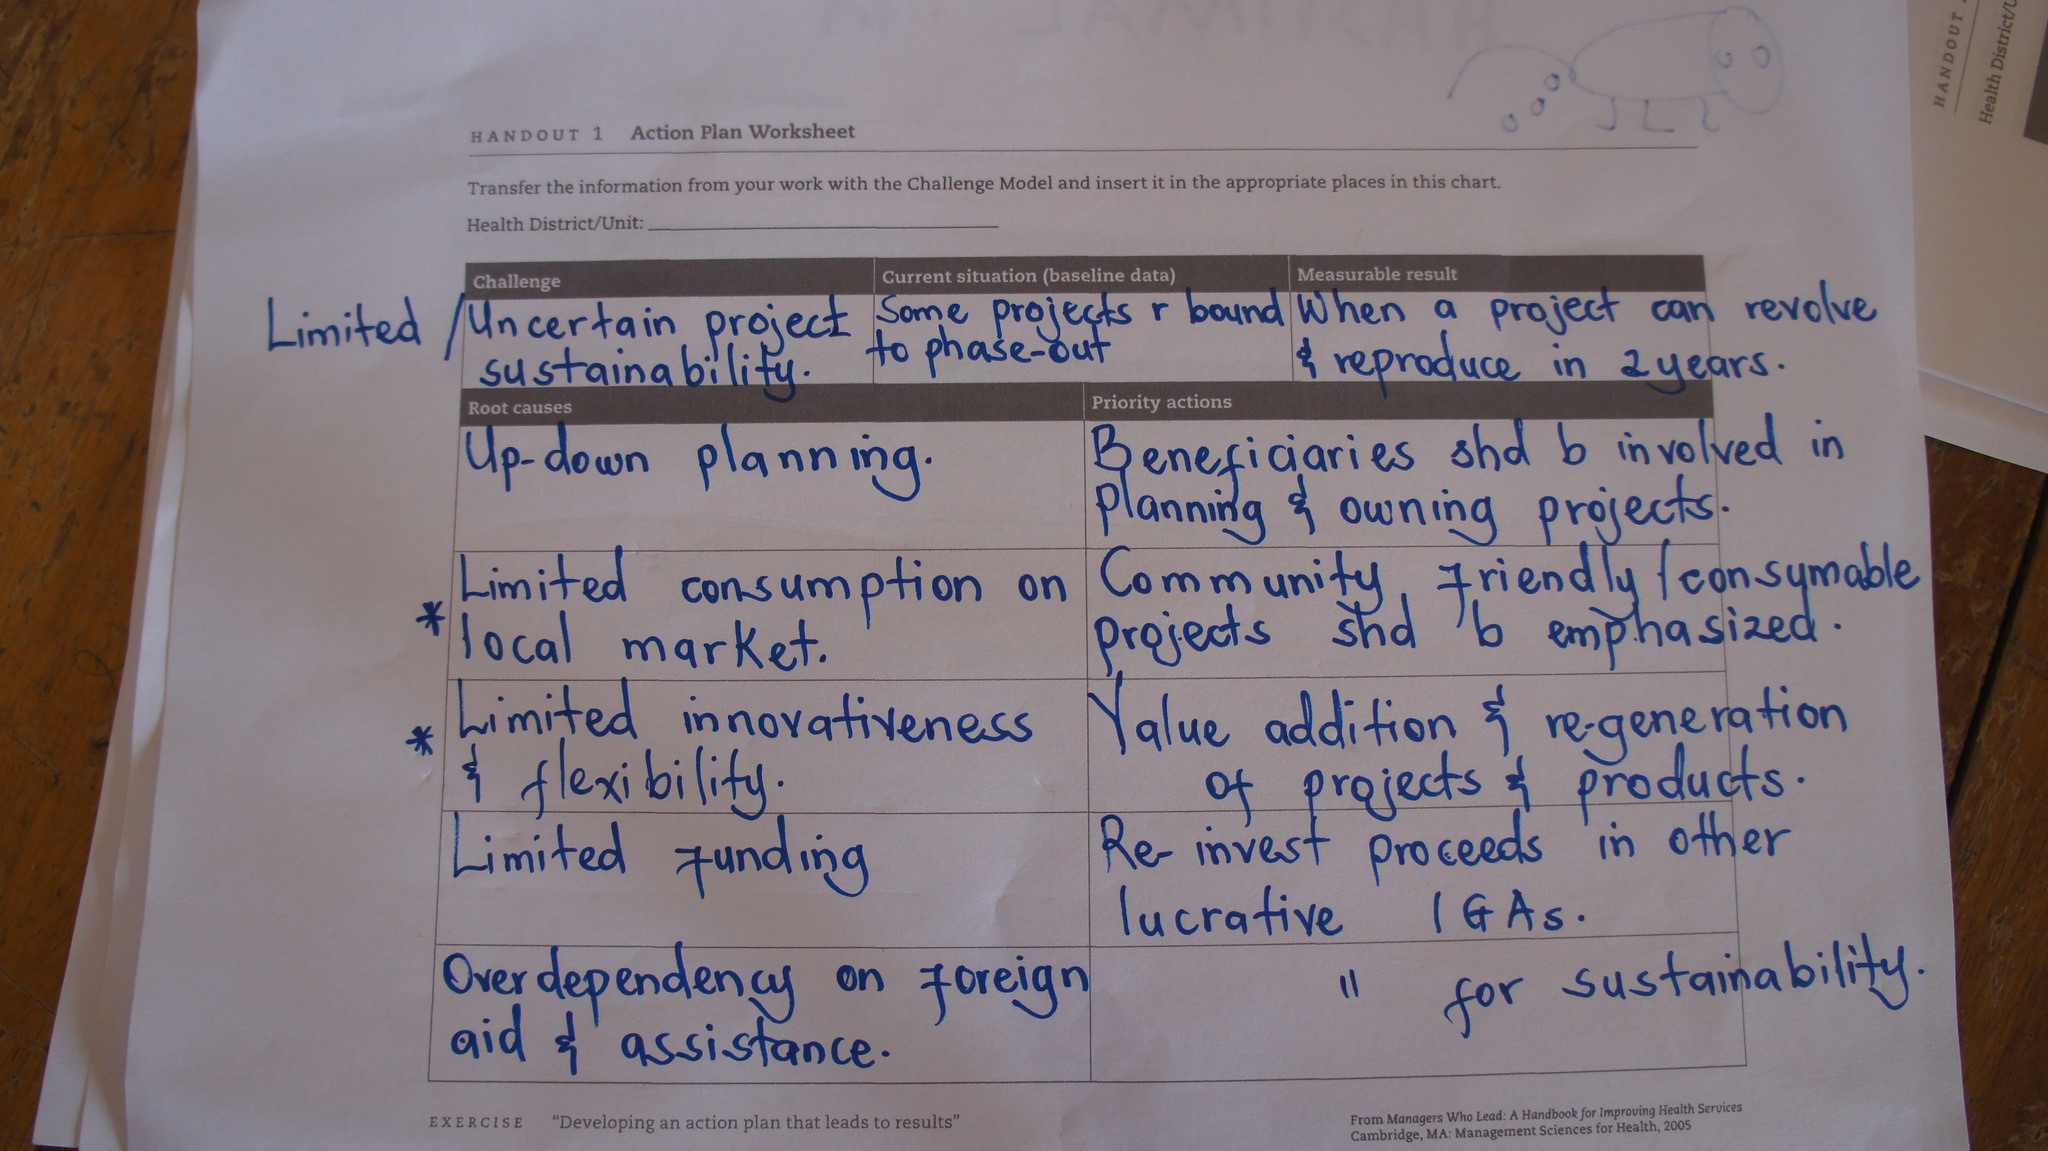 HANDOUT 1 Action Plan Worksheet
HANDOUT
Health District/U
Transfer the information from your work with the Challenge Model and insert it in the appropriate places in this chart.
Health District/Unit:
Challenge
Current situation (baseline data)
Measurable result
Limited / Uncertain project
sustainability.
Some projects r bound
to phase-out
When a project can revolve
& reproduce in 2 years.
Root causes
Priority actions
Up-down planning.
Beneficiaries shd b involved in
planning & owning projects.
Limited consumption on
* local market.
Community friendly / consymable
projects shd b emphasized.
Limited innovativeness
* & flexibility.
Value addition & re-generation
of projects & products.
Limited funding
Re-invest proceeds in other
lucrative IGAs.
Overdependency on foreign
aid & assistance.
" for sustainability.
EXERCISE "Developing an action plan that leads to results"
From Managers Who Lead: A Handbook for Improving Health Services
Cambridge, MA: Management Sciences for Health, 2005